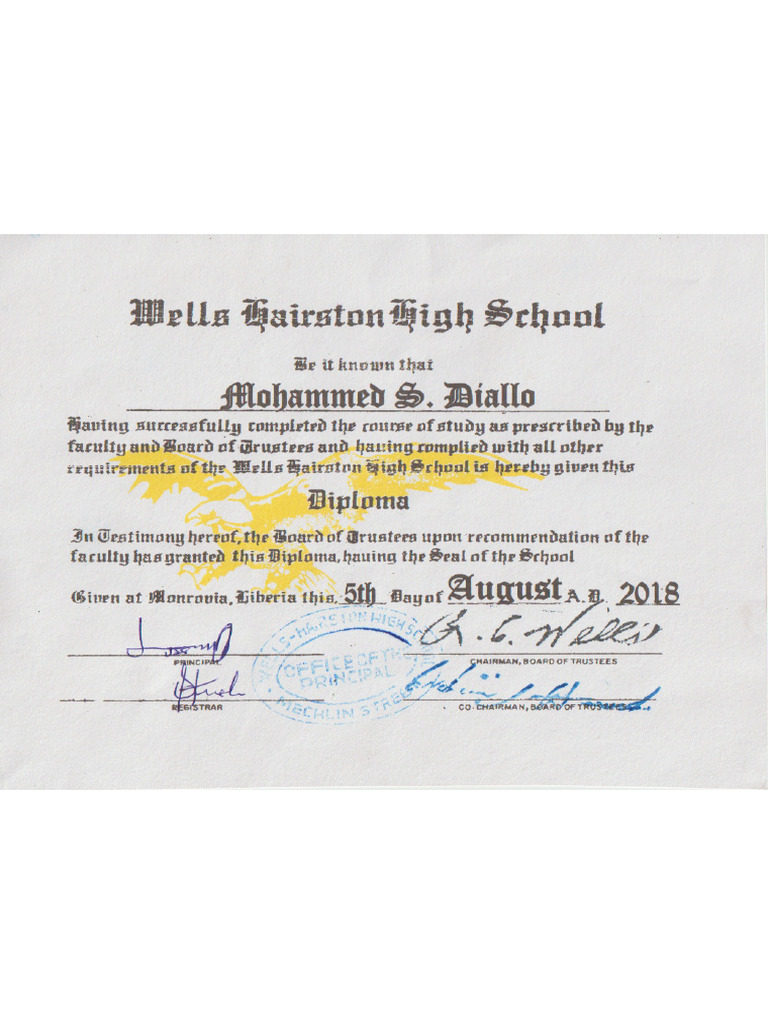 Wells Hairston High School
Be it known that
Mohammed S. Diallo
Having successfully completed the course of study as prescribed by the
faculty and Board of Trustees and having complied with all other
requirements of the Wells Hairston High School is hereby given this
Diploma
In Testimony hereof, the Board of Trustees upon recommendation of the
faculty has granted this Diploma, having the Seal of the School
Given at Monrovia, Liberia this 5th Day of August A.D. 2018
WELLS-HAIRSTON HIGH SCHOOL
OFFICE OF THE
PRINCIPAL
MECHLIN STREET
PRINCIPAL
CHAIRMAN, BOARD OF TRUSTEES
REGISTRAR
CO-CHAIRMAN, BOARD OF TRUSTEES